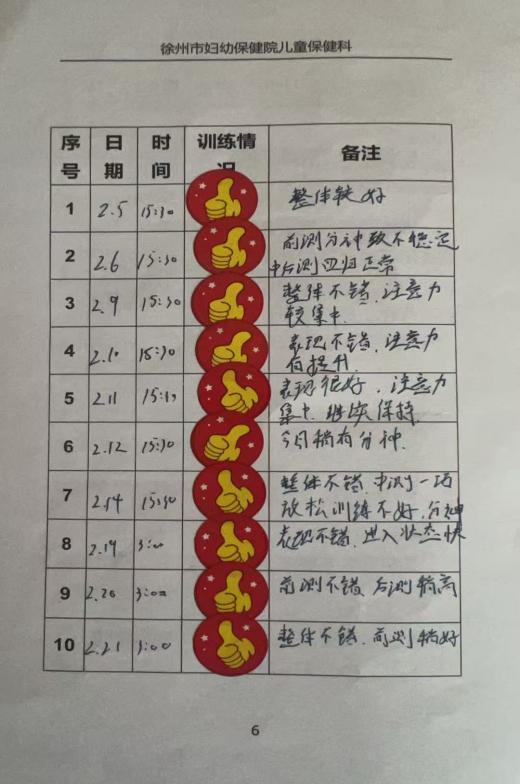 徐州市妇幼保健院儿童保健科
序号 日期 时间 训练情况 备注
1 2.5 15:30 整体较好
2 2.6 15:30 前测分神致不稳定
中后测回归正常
3 2.9 15:30 整体不错,注意力
较集中.
4 2.10 15:30 表现不错,注意力
有提升.
5 2.11 15:30 表现很好,注意力
集中.继续保持.
6 2.12 15:30 今日稍有分神.
7 2.14 15:30 整体不错,中测一
放松训练不好,分神
8 2.19 3:00 表现不错,进入状态快
9 2.20 3:00 前测不错,后测稍高
10 2.21 3:00 整体不错,前测稍好
6